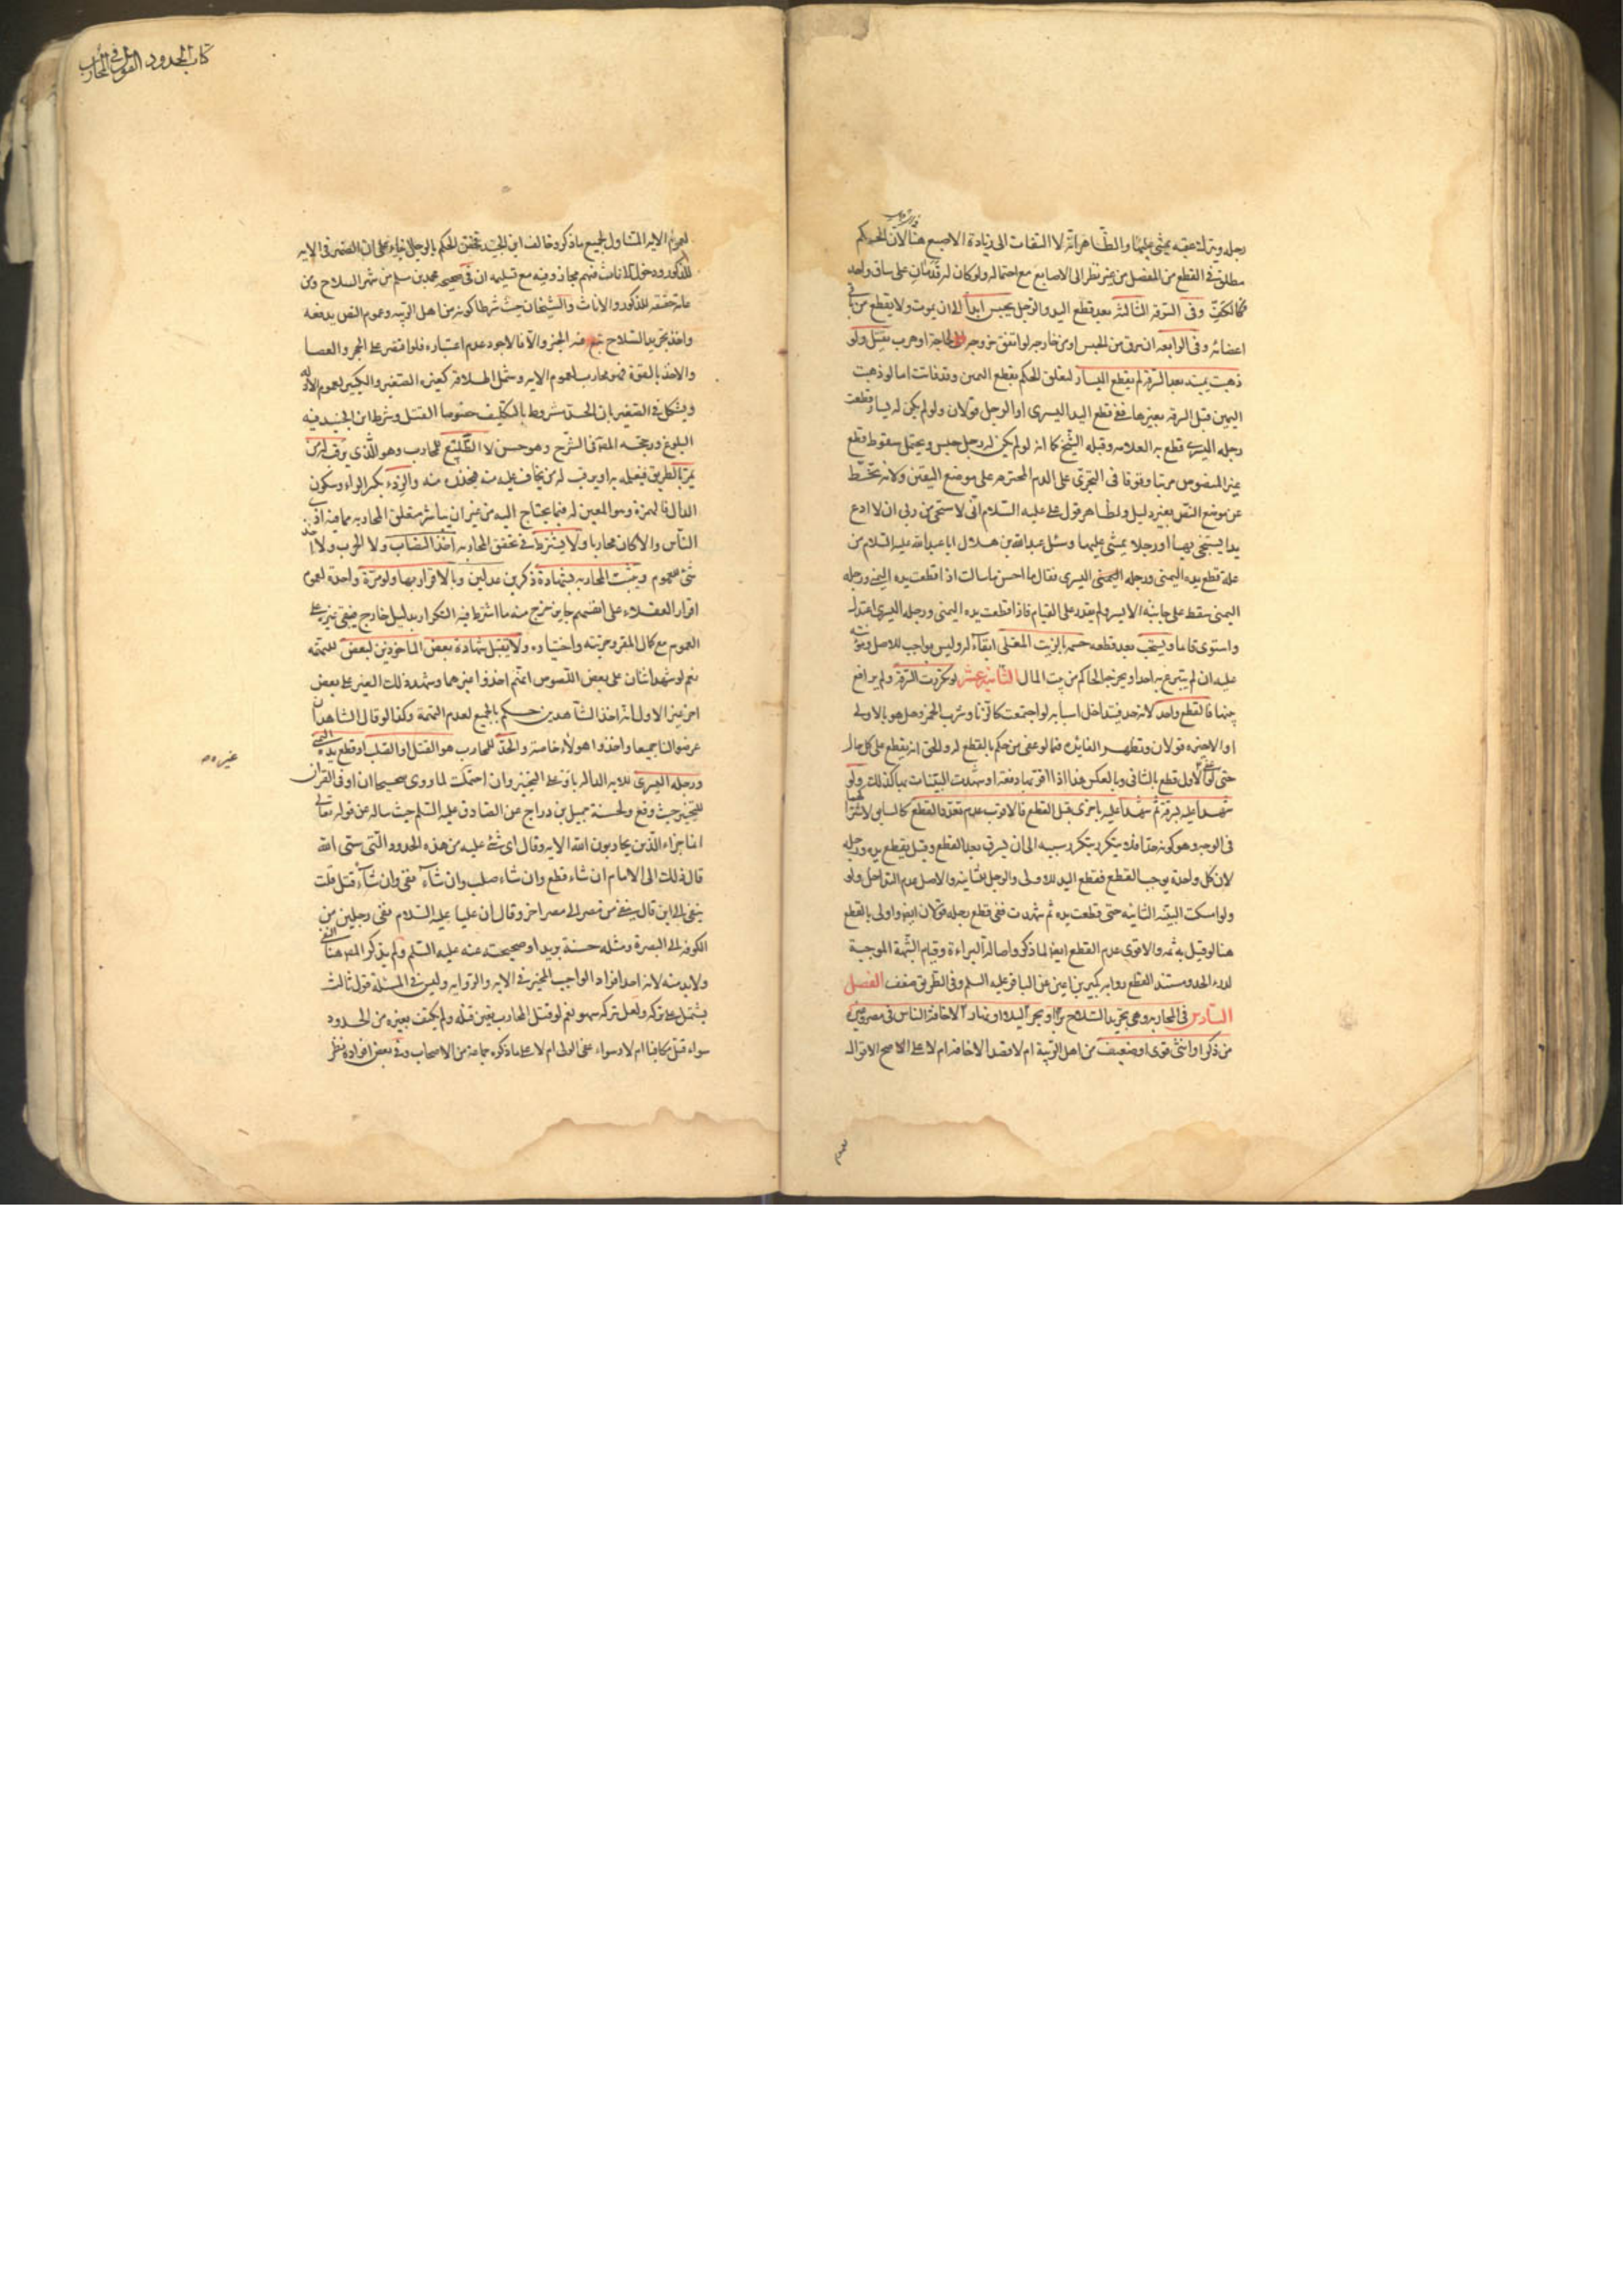 رجله ويترك عقبه يمشي عليها والظاهر انه لا التفات الى زيادة الاصبع هنا لان الحكم
مطلق في القطع من المفصل من غير نظر الى الاصابع مع احتماله ولو كان له قدمان على ساق واحد
فكالكف وفي السرقة الثالثة بعد قطع اليد والرجل يحبس ابدا الى ان يموت ولا يقطع من باقي
اعضائه وفي الرابعة ان سرق من الحبس او من خارجه لو اتفق خروجه لحاجة او هرب يقتل ولو
ذهبت يمينه بعد السرقة لم يقطع اليسار لتعلق الحكم بقطع اليمين وقد فاتت اما لو ذهبت
اليمين قبل السرقة بغيرها ففي قطع اليد اليسرى او الرجل قولان ولو لم يكن له يسار قطعت
رجله اليسرى قطع به العلامة وقبله الشيخ كما انه لو لم يكن له رجل حبس ويحتمل سقوط قطع
غير المنصوص مرتبا وقوفا في التجري على الدم المحترم على موضع اليقين ولانه تخط
عن موضع النص بغير دليل ولظاهر قول علي عليه السلام اني لاستحي من ربي ان لا ادع
يدا يستنجي بها او رجلا يمشي عليها وسئل عبد الله بن هلال ابا عبد الله عليه السلام عن
علة قطع يده اليمنى ورجله اليمنى اليسرى فقال ما احسن ما سالت اذا قطعت يده اليمنى ورجله
اليمنى سقط على جانبه الايسر ولم يقدر على القيام فاذا قطعت يده اليمنى ورجله اليسرى اعتدل
واستوى قائما ويستحب بعد قطعه حسمه بالزيت المغلي ابقاء له وليس بواجب للاصل ومؤنته
عليه ان لم يتبرع به احد او يخرجه الحاكم من بيت المال الثانية عشر لو تكررت السرقة ولم يرافع
بينها فالقطع واحد لانه حد فتتداخل اسبابه لو اجتمعت كالزنا وشرب الخمر وهل هو بالاولى
او الاخيرة قولان وتظهر الفائدة فيما لو عفى من حكم بالقطع له والحق انه يقطع على كل حال
حتى لو عفى الاول قطع بالثاني وبالعكس هذا اذا اقر بها دفعة او شهدت البينات بها كذلك ولو
شهدا عليه بسرقة ثم شهدا عليه باخرى قبل القطع فالاقرب عدم تعدد القطع كالسابق لاشتراكهما
في الوجه وهو كونه حدا فلا يتكرر بتكرر سببه الى ان يسرق بعد القطع وقيل يقطع يده ورجله
لان كل واحدة يوجب القطع فقطع اليد للاولى والرجل للثانية والاصل عدم التداخل ولو
ولو امسكت البينة الثانية حتى قطعت يده ثم شهدت ففي قطع رجله قولان ايضا واولى بالقطع
هنا لو قيل به ثمه والاقوى عدم القطع ايضا لما ذكر واصالة البراءة وقيام الشبهة الموجبة
لدرء الحد ومستند القطع رواية بكير بن اعين عن الباقر عليه السلم وفي الطريق ضعف الفصل
السادس في المحاربة وهي تجريد السلاح برا او بحرا ليلا او نهارا لاخافة الناس في مصر وغيره
من ذكر او انثى قوي او ضعيف من اهل الريبة ام لا قصد الاخافة ام لا على الاصح الاقوال
كتاب الحدود الفصل في المحارب
لعموم الاية المتناول لجميع ما ذكر وخالف ابن الجنيد فخص الحكم بالرجال بناء على ان الضمير في الاية
للذكور ودخول الاناث فيهم مجاز وفيه مع تسليمه ان في صحيحة محمد بن مسلم من شهر السلاح ومن
عامة حقيقة للذكور والاناث والشيخان حيث شرطا كونه من اهل الريبة وعموم النص يدفعه
واخذ تجريد السلاح تبع فيه الخبر والا فالاجود عدم اعتباره فلو اقتصر على الحجر والعصا
والاخذ بالقوة فهو محارب لعموم الاية وشمل اطلاقه كغيره الصغير والكبير لعموم الادلة
ويشكل في الصغير بان الحد مشروط بالتكليف خصوصا القتل وشرط ابن الجنيد فيه
البلوغ ورجحه المصنف في الشرح وهو حسن لا الطليع للمحارب وهو الذي يرقب له من
يمر بالطريق فيعلمه به او يرقب له من يخاف عليه منه فيحذره منه والردء بكسر الراء وسكون
الدال فالهمزة وهو المعين له فيما يحتاج اليه من غير ان يباشر متعلق المحاربة مما فيه اذى
الناس والا كان محاربا ولا يشترط في تحقق المحاربة اخذ النصاب ولا الحرب ولا اخذ
شئ للعموم ويثبت المحاربة بشهادة ذكرين عدلين وبالاقرار بها ولو مرة واحدة لعموم
اقرار العقلاء على انفسهم جايز خرج منه ما اشترط فيه التكرار بدليل خارج فيبقى غيره على
العموم مع كمال المقر وحريته واختياره ولا يقبل شهادة بعض الماخوذين لبعض للتهمة
نعم لو شهد اثنان على بعض اللصوص انهم اخذوا غيرهما وشهد ذلك الغير على بعض
اخر غير الاول انه اخذ الشاهدين حكم بالجميع لعدم التهمة وكذا لو قال الشاهدان
عرضوا لنا جميعا واخذوا هولاء خاصة والحد للمحارب هو القتل او الصلب او قطع يده اليمنى
ورجله اليسرى للاية الدالة باو على التخيير وان احتملت لما روي صحيحا ان او في القران
للتخيير حيث وقع ولحسنة جميل بن دراج عن الصادق عليه السلم حيث ساله عن قوله تعالى
انما جزاء الذين يحاربون الله الاية وقال اي شئ عليه من هذه الحدود التي سمى الله
قال ذلك الى الامام ان شاء قطع وان شاء صلب وان شاء نفى وان شاء قتل قلت
ينفى الى اين قال ينفى من مصر الى مصر اخر وقال ان عليا عليه السلام نفى رجلين من
الكوفة الى البصرة ومثله حسنة بريد او صحيحته عنه عليه السلم ولم يذكر المص هنا النفي
ولا بد منه لانه احد افراد الواجب المخير في الاية والرواية وليس في المسئلة قول ثالث
يشتمل على تركه ولعل تركه سهو نعم لو قتل المحارب تعين قتله ولم يكتف بغيره من الحدود
سواء قتل مكافئا ام لا وسواء عفى الولي ام لا على ما ذكره جماعة من الاصحاب وفي بعض افراده نظر